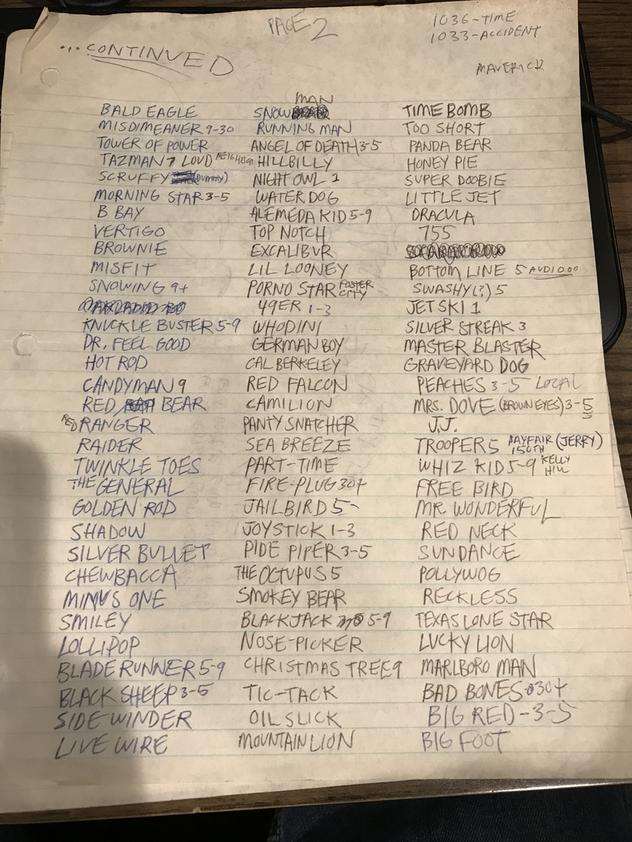 PAGE 2
1036-TIME
1033-ACCIDENT
...CONTINUED
MAVERICK
BALD EAGLE
MISDIMEANER 9-30
TOWER OF POWER
TAZMAN 7 LOUD NEIGHBOR
SCRUFFY (DUMMY)
MORNING STAR 3-5
B BAY
VERTIGO
BROWNIE
MISFIT
SNOWING 9+
KNUCKLE BUSTER 5-9
DR. FEEL GOOD
HOT ROD
CANDYMAN 9
RED BEAR
RED RANGER
RAIDER
TWINKLE TOES
THE GENERAL
GOLDEN ROD
SHADOW
SILVER BULLET
CHEWBACCA
MINUS ONE
SMILEY
LOLLIPOP
BLADE RUNNER 5-9
BLACK SHEEP 3-5
SIDE WINDER
LIVE WIRE
SNOWMAN
RUNNING MAN
ANGEL OF DEATH 3-5
HILLBILLY
NIGHT OWL 1
WATER DOG
ALEMEDA KID 5-9
TOP NOTCH
EXCALIBUR
LIL LOONEY
PORNO STAR FOSTER CITY
49ER 1-3
WHODINI
GERMAN BOY
CAL BERKELEY
RED FALCON
CAMILION
PANTY SNATCHER
SEA BREEZE
PART-TIME
FIRE-PLUG 30+
JAILBIRD 5-
JOYSTICK 1-3
PIDE PIPER 3-5
THE OCTUPUS 5
SMOKEY BEAR
BLACKJACK 5-9
NOSE-PICKER
CHRISTMAS TREE 9
TIC-TACK
OIL SLICK
MOUNTAIN LION
TIME BOMB
TOO SHORT
PANDA BEAR
HONEY PIE
SUPER DOOBIE
LITTLE JET
DRACULA
755
BOTTOM LINE 5 AUDIO
SWASHY(?) 5
JET SKI 1
SILVER STREAK 3
MASTER BLASTER
GRAVEYARD DOG
PEACHES 3-5 LOCAL
MRS. DOVE (BROWN EYES) 3-5
J.J.
TROOPER 5 BAYFAIR 150TH (JERRY)
WHIZ KID 5-9 KELLY HILL
FREE BIRD
MR. WONDERFUL
RED NECK
SUNDANCE
POLLYWOG
RECKLESS
TEXAS LONE STAR
LUCKY LION
MARLBORO MAN
BAD BONES 30+
BIG RED-3-5
BIG FOOT